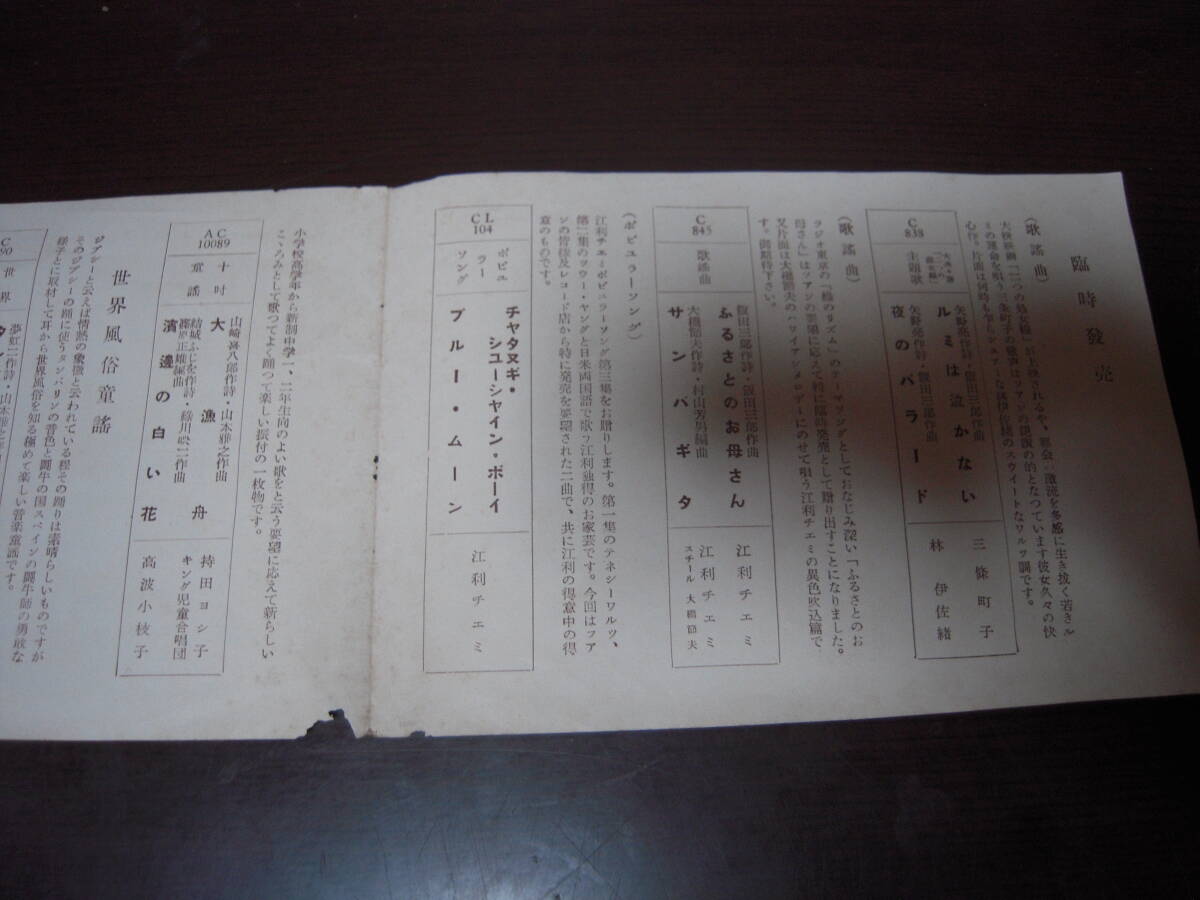 臨時發売
(歌謡曲)
大映映画「二つの処女線」が上映されるや、都会の激流を多感に生き抜く若きル
ミの運命を唄う三条町子の歌声はフアンの
の的となつています彼女久々の快
心作。片面は何時も
らシユアーな林伊佐緒のスウイートなワルツ調です。
C
838
主題歌
矢野亮作詩・飯田三郎作曲
ルミは泣かない
三條町子
矢野亮作詩・飯田三郎作曲
夜のバラード
林伊佐緒
(歌謡曲)
ラジオ東京の「
のリズム」のテーマソングとしておなじみ深い「ふるさとのお
母さん」はフアンの要望に応えて特に臨時発売として贈り出すことになりました。
又片面は大橋節夫のハワイアンメロデーにのせて唄う江利チエミの異色吹込篇で
す。御期待下さい。
C
845
歌謡曲
飯田三郎作詩・飯田三郎作曲
ふるさとのお母さん
江利チエミ
大橋節夫作詩・村山芳男編曲
サンパギタ
江利チエミ
スチール 大橋節夫
(ポピユラーソング)
江利チエミポピユラーソング第三集をお贈りします。第一集のテネシーワルツ、
第二集のツウー・ヤングと日米両国語で歌う江利独得のお家芸です。今回はフア
ンの皆様及レコード店から特に発売を要望された二曲で、共に江利の得意中の得
意のものです。
CL
104
ポピユラーソング
チャタヌギ・
シユーシヤイン・ボーイ
ブルー・ムーン
江利チエミ
小学校高学年から新制中学一、二年生向のよい歌をと云う要望に応えて新らしい
こゝろみとして歌つてよく踊つて楽しい振付の一枚物です。
AC
10089
十吋
童謡
山崎喜八郎作詩・山本雅之作曲
大漁舟
持田ヨシ子
キング児童合唱団
結城ふじを作詩・緑川映二作曲
正雄編曲
濱邊の白い花
高波小枝子
世界風俗童謡
ジプシーと云えば情熱の象徴と云われている程その踊りは素晴らしいものですが
そのジプシーの踊に使うタンバリンの音色と闘牛の国スペインの闘牛師の勇敢な
様子とに取材して耳から世界風俗を知る極めて楽しい音楽童謡です。
世界
夢虹二作詩・山本雅之